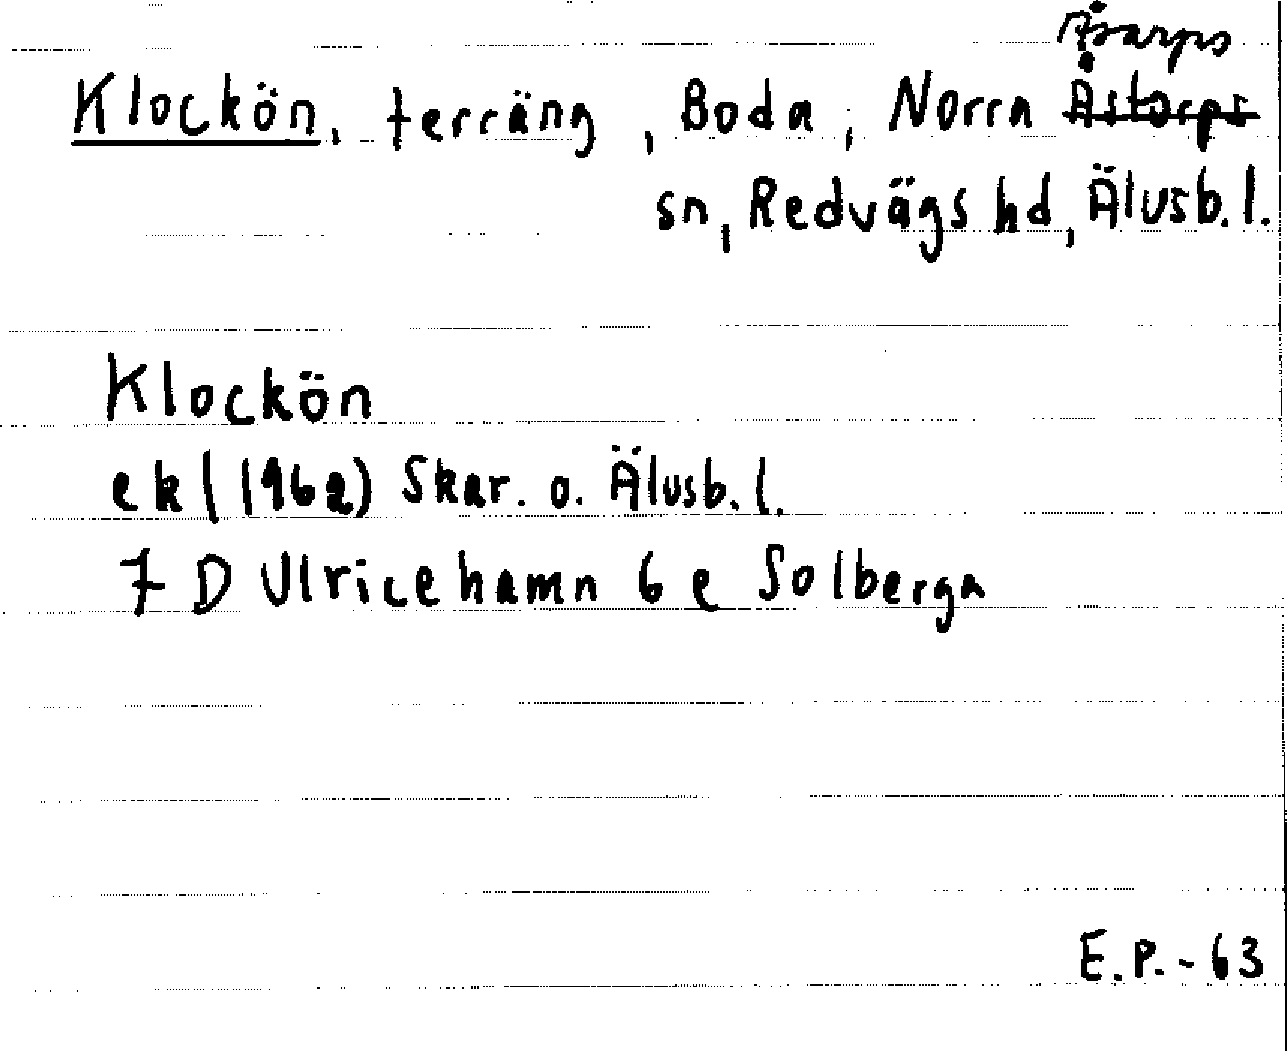 Åsarps
Klockön, terräng, Boda, Norra Åstorps
sn, Redvägs hd, Älvsb. l.
Klockön
ek (1962) Skar. o. Älvsb. l.
7 D Ulricehamn 6 e Solberga
E.P.-63